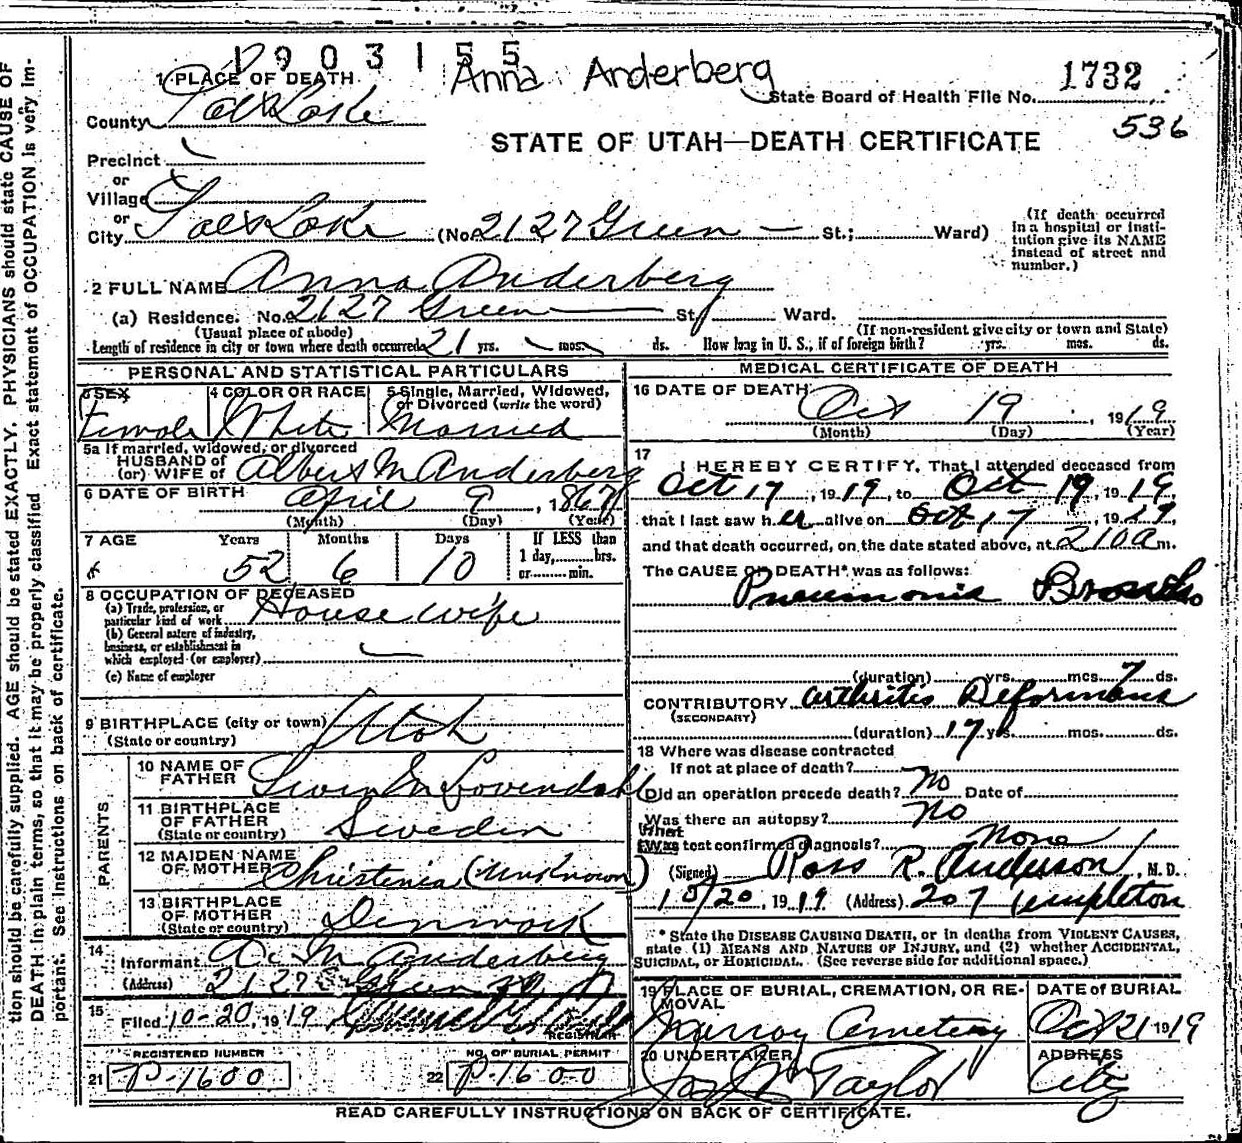 1903155
Anna Anderberg
1 PLACE OF DEATH
State Board of Health File No. 1732
County Salt Lake
536
STATE OF UTAH—DEATH CERTIFICATE
Precinct
or
Village
or
City Salt Lake (No. 2127 Green St.; Ward)
(If death occurred
in a hospital or insti-
tution give its NAME
instead of street and
number.)
2 FULL NAME Anna Anderberg
(a) Residence. No. 2127 Green St. Ward.
(Usual place of abode) (If non-resident give city or town and State)
Length of residence in city or town where death occurred 21 yrs. mos. ds. How long in U. S., if of foreign birth? yrs. mos. ds.
PERSONAL AND STATISTICAL PARTICULARS
3 SEX 4 COLOR OR RACE 5 Single, Married, Widowed,
or Divorced (write the word)
Female White Married
5a If married, widowed, or divorced
HUSBAND of
(or) WIFE of Albert M Anderberg
6 DATE OF BIRTH April 9, 1867
(Month) (Day) (Year)
7 AGE Years Months Days If LESS than
1 day, hrs.
or min.
52 6 10
8 OCCUPATION OF DECEASED
(a) Trade, profession, or
particular kind of work House wife
(b) General nature of industry,
business, or establishment in
which employed (or employer)
(c) Name of employer
9 BIRTHPLACE (city or town) Utah
(State or country)
PARENTS
10 NAME OF
FATHER Swen M Lovendahl
11 BIRTHPLACE
OF FATHER
(State or country) Sweden
12 MAIDEN NAME
OF MOTHER Christenia (Unknown)
13 BIRTHPLACE
OF MOTHER
(State or country) Denmark
14 Informant A. M Anderberg
(Address) 2127 Green
15 Filed 10-20, 1919
REGISTRAR
REGISTERED NUMBER NO. OF BURIAL PERMIT
21 P-1600 22 P-1600
MEDICAL CERTIFICATE OF DEATH
16 DATE OF DEATH Oct 19, 1919
(Month) (Day) (Year)
17 I HEREBY CERTIFY, That I attended deceased from
Oct 17, 1919, to Oct 19, 1919
that I last saw her alive on Oct 17, 1919
and that death occurred, on the date stated above, at 210 a m.
The CAUSE OF DEATH* was as follows:
Pneumonia Broncho
(duration) yrs. mos. 7 ds.
CONTRIBUTORY Arthritis Deformans
(SECONDARY)
(duration) 17 yrs. mos. ds.
18 Where was disease contracted
If not at place of death?
Did an operation precede death? No Date of
Was there an autopsy? No
What
Was test confirmed diagnosis? None
(Signed) Ross R. Anderson, M. D.
10/20, 1919 (Address) 207 Templeton
* State the DISEASE CAUSING DEATH, or in deaths from VIOLENT CAUSES,
state (1) MEANS AND NATURE OF INJURY, and (2) whether ACCIDENTAL,
SUICIDAL, or HOMICIDAL. (See reverse side for additional space.)
19 PLACE OF BURIAL, CREMATION, OR RE-
MOVAL
DATE of BURIAL
Murray Cemetery Oct 21 1919
20 UNDERTAKER ADDRESS
Jos Wm Taylor City
READ CAREFULLY INSTRUCTIONS ON BACK OF CERTIFICATE.
tion should be carefully supplied. AGE should be stated EXACTLY. PHYSICIANS should state CAUSE OF
DEATH in plain terms, so that it may be properly classified. Exact statement of OCCUPATION is very im-
portant. See instructions on back of certificate.